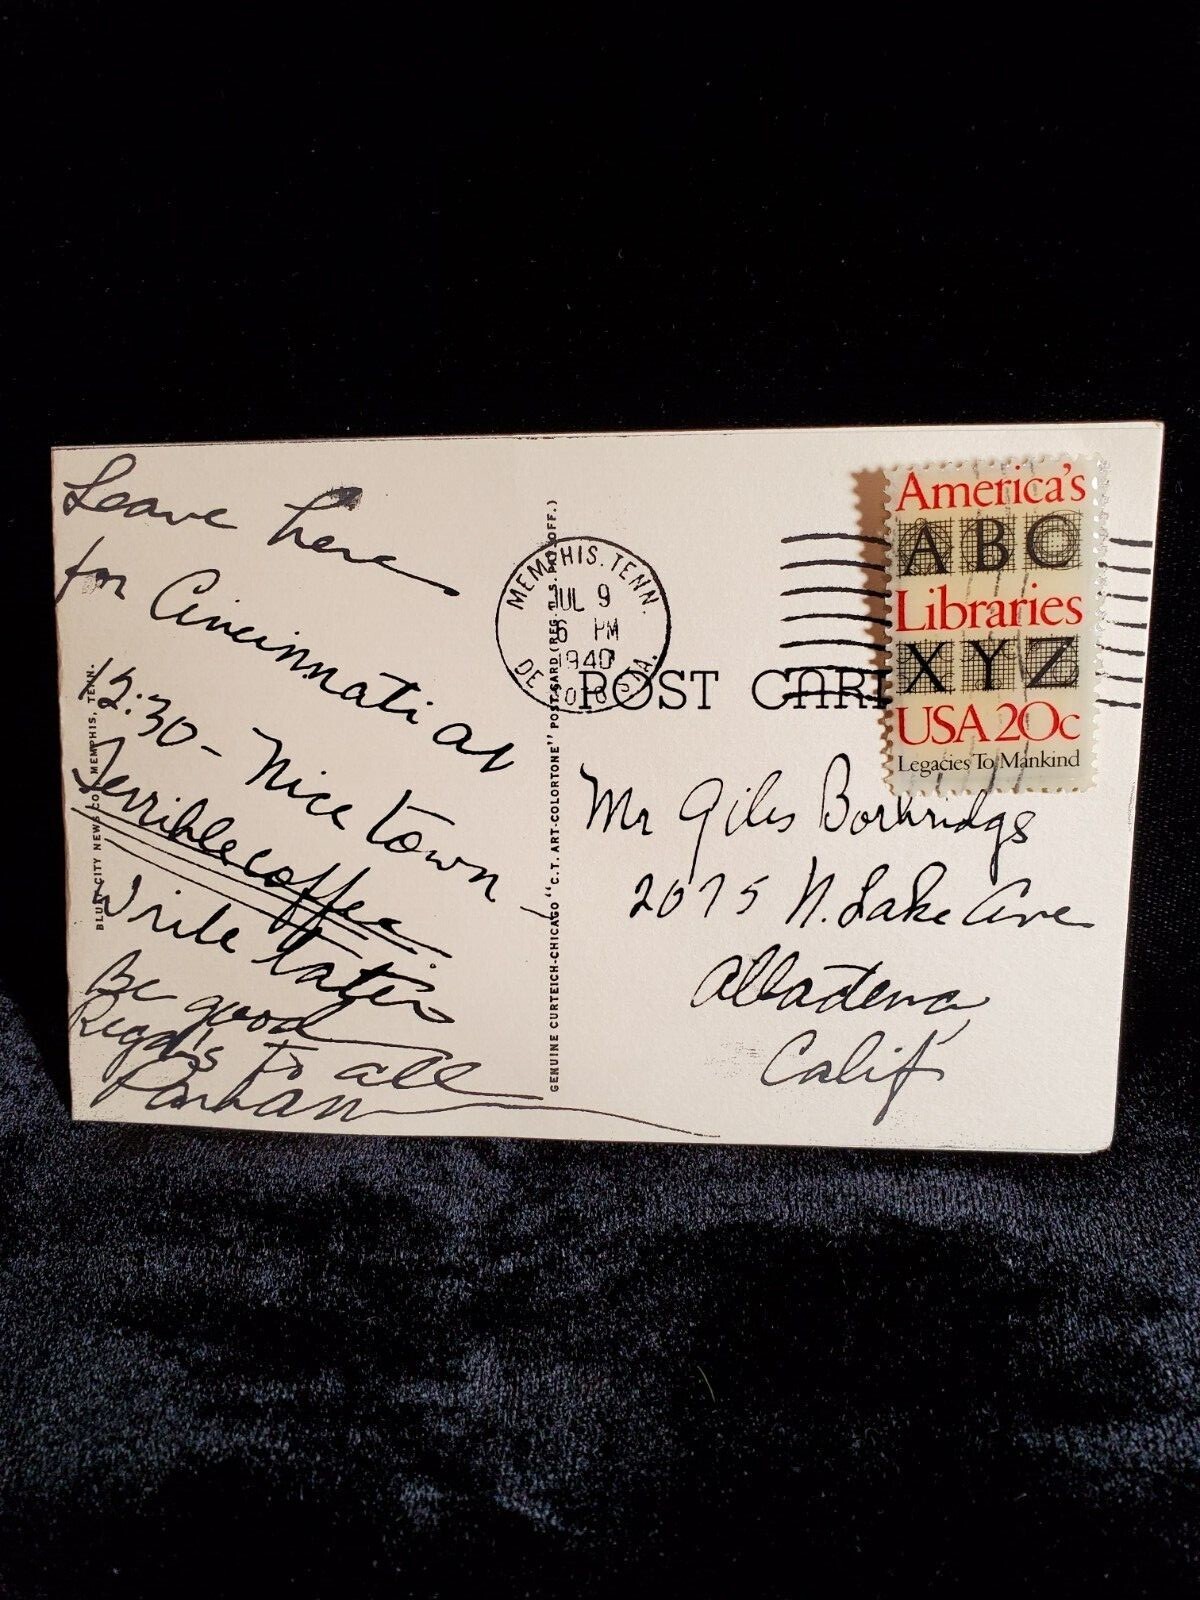 Leave here
for Cincinnati at
12:30 - Nice town
Terrible coffee
Write later
Be good
Regds to all
MEMPHIS. TENN.
JUL 9
6 PM
1940
POST CARD
America's
ABC
Libraries
XYZ
USA 20c
Legacies To Mankind
Mr Giles
2075 N. Lake Ave
Altadena
Calif
BLUFF CITY NEWS CO., MEMPHIS, TENN.
GENUINE CURTEICH-CHICAGO "C.T. ART-COLORTONE" POST CARD (REG. U.S. PAT. OFF.)